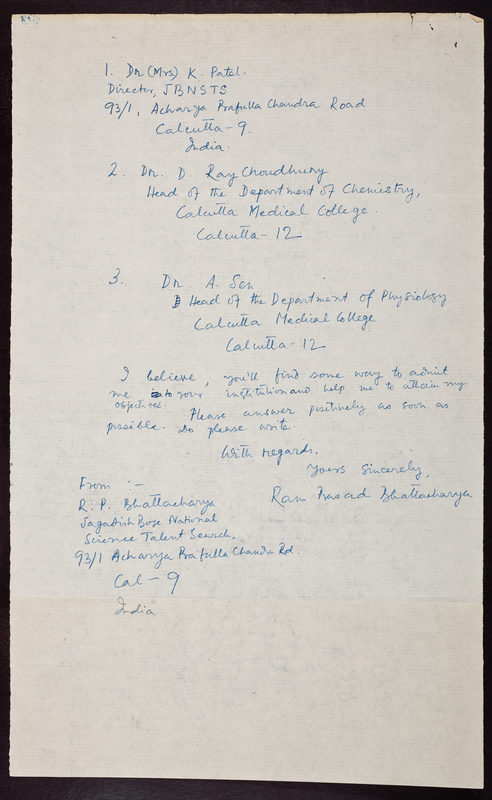 1. Dr. (Mrs) K. Patel.
Director, JBNSTS
93/1, Acharya Prafulla Chandra Road
Calcutta - 9.
India.
2. Dr. D. Ray Choudhury
Head of the Department of Chemistry,
Calcutta Medical College.
Calcutta - 12
3. Dr A. Sen
Head of the Department of Physiology
Calcutta Medical College
Calcutta - 12
I believe, you'll find some way to admit
me to your institution and help me to attain my
objectives. Please answer positively as soon as
possible. Do please write.
With regards.
Yours Sincerely,
Ram Prasad Bhattacharya.
From :-
R. P. Bhattacharya
Jagadish Bose National
Science Talent Search,
93/1 Acharya Prafulla Chandra Rd.
Cal - 9
India